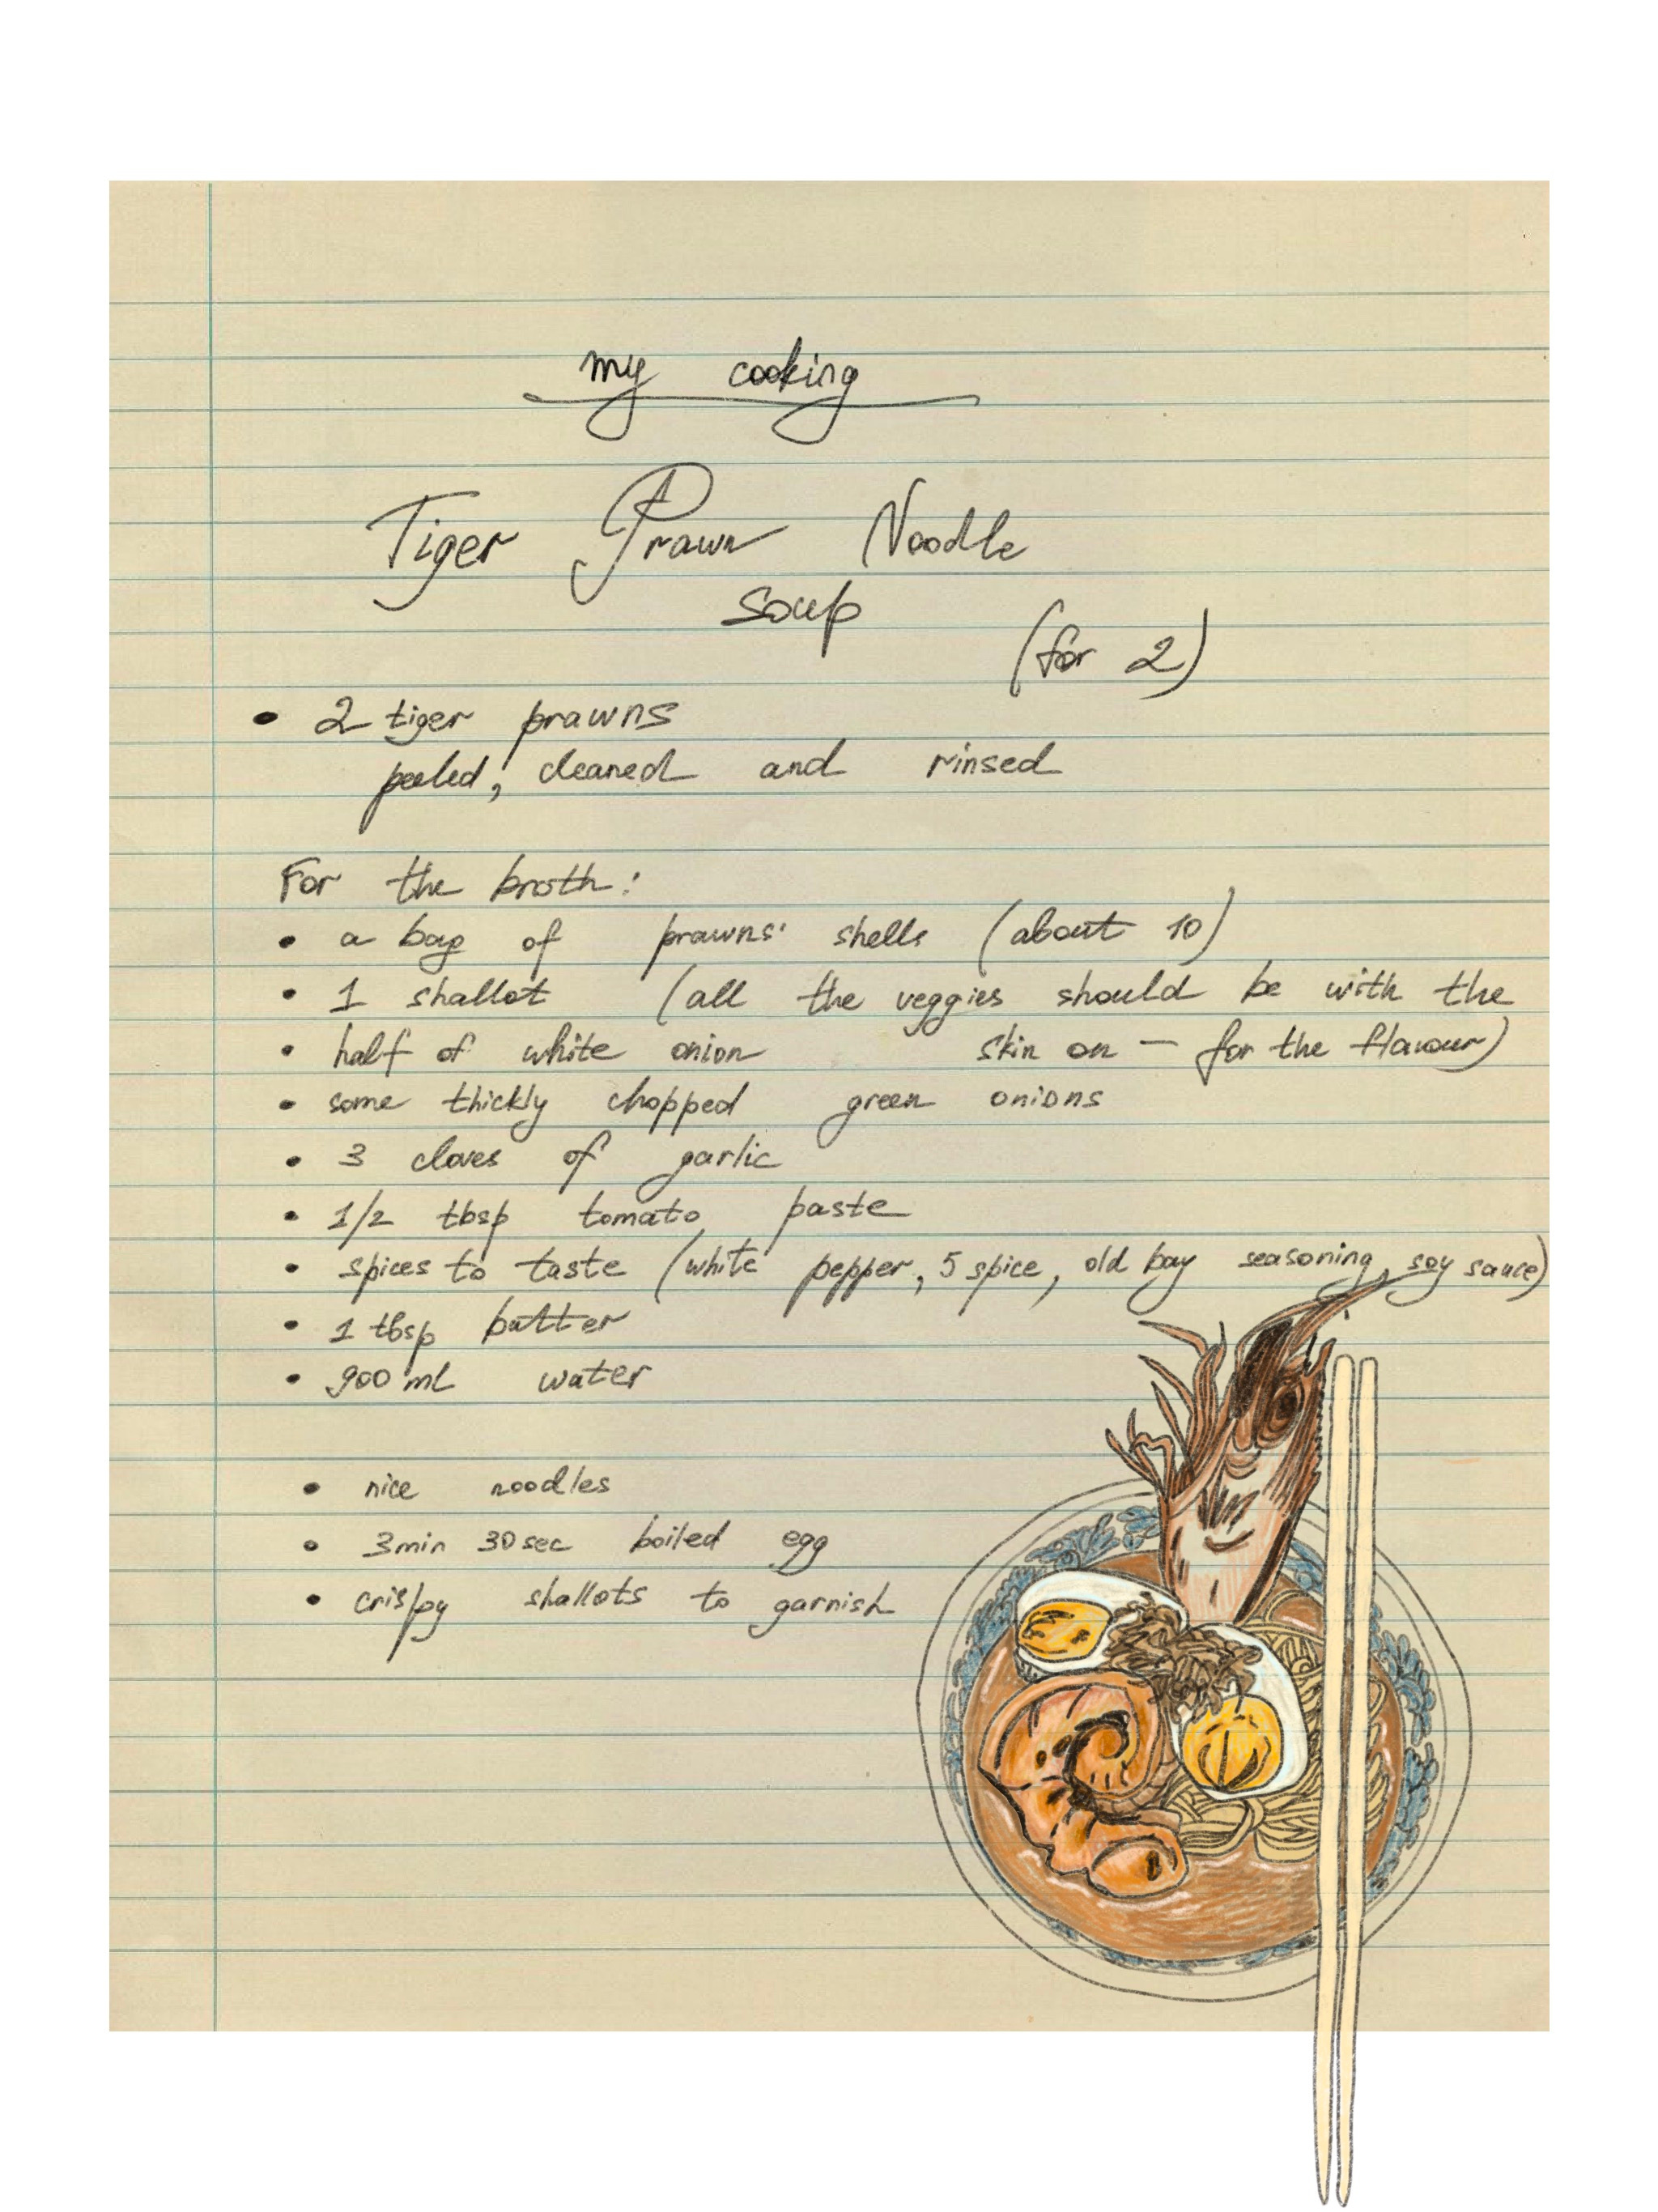 my cooking
Tiger Prawn Noodle
soup
(for 2)
• 2 tiger prawns
peeled, cleaned and rinsed
For the broth:
• a bag of prawns' shells (about 10)
• 1 shallot (all the veggies should be with the
• half of white onion skin on — for the flavour)
• some thickly chopped green onions
• 3 cloves of garlic
• 1/2 tbsp tomato paste
• spices to taste (white pepper, 5 spice, old bay seasoning, soy sauce)
• 1 tbsp butter
• 900 ml water
• nice noodles
• 3min 30sec boiled egg
• crispy shallots to garnish